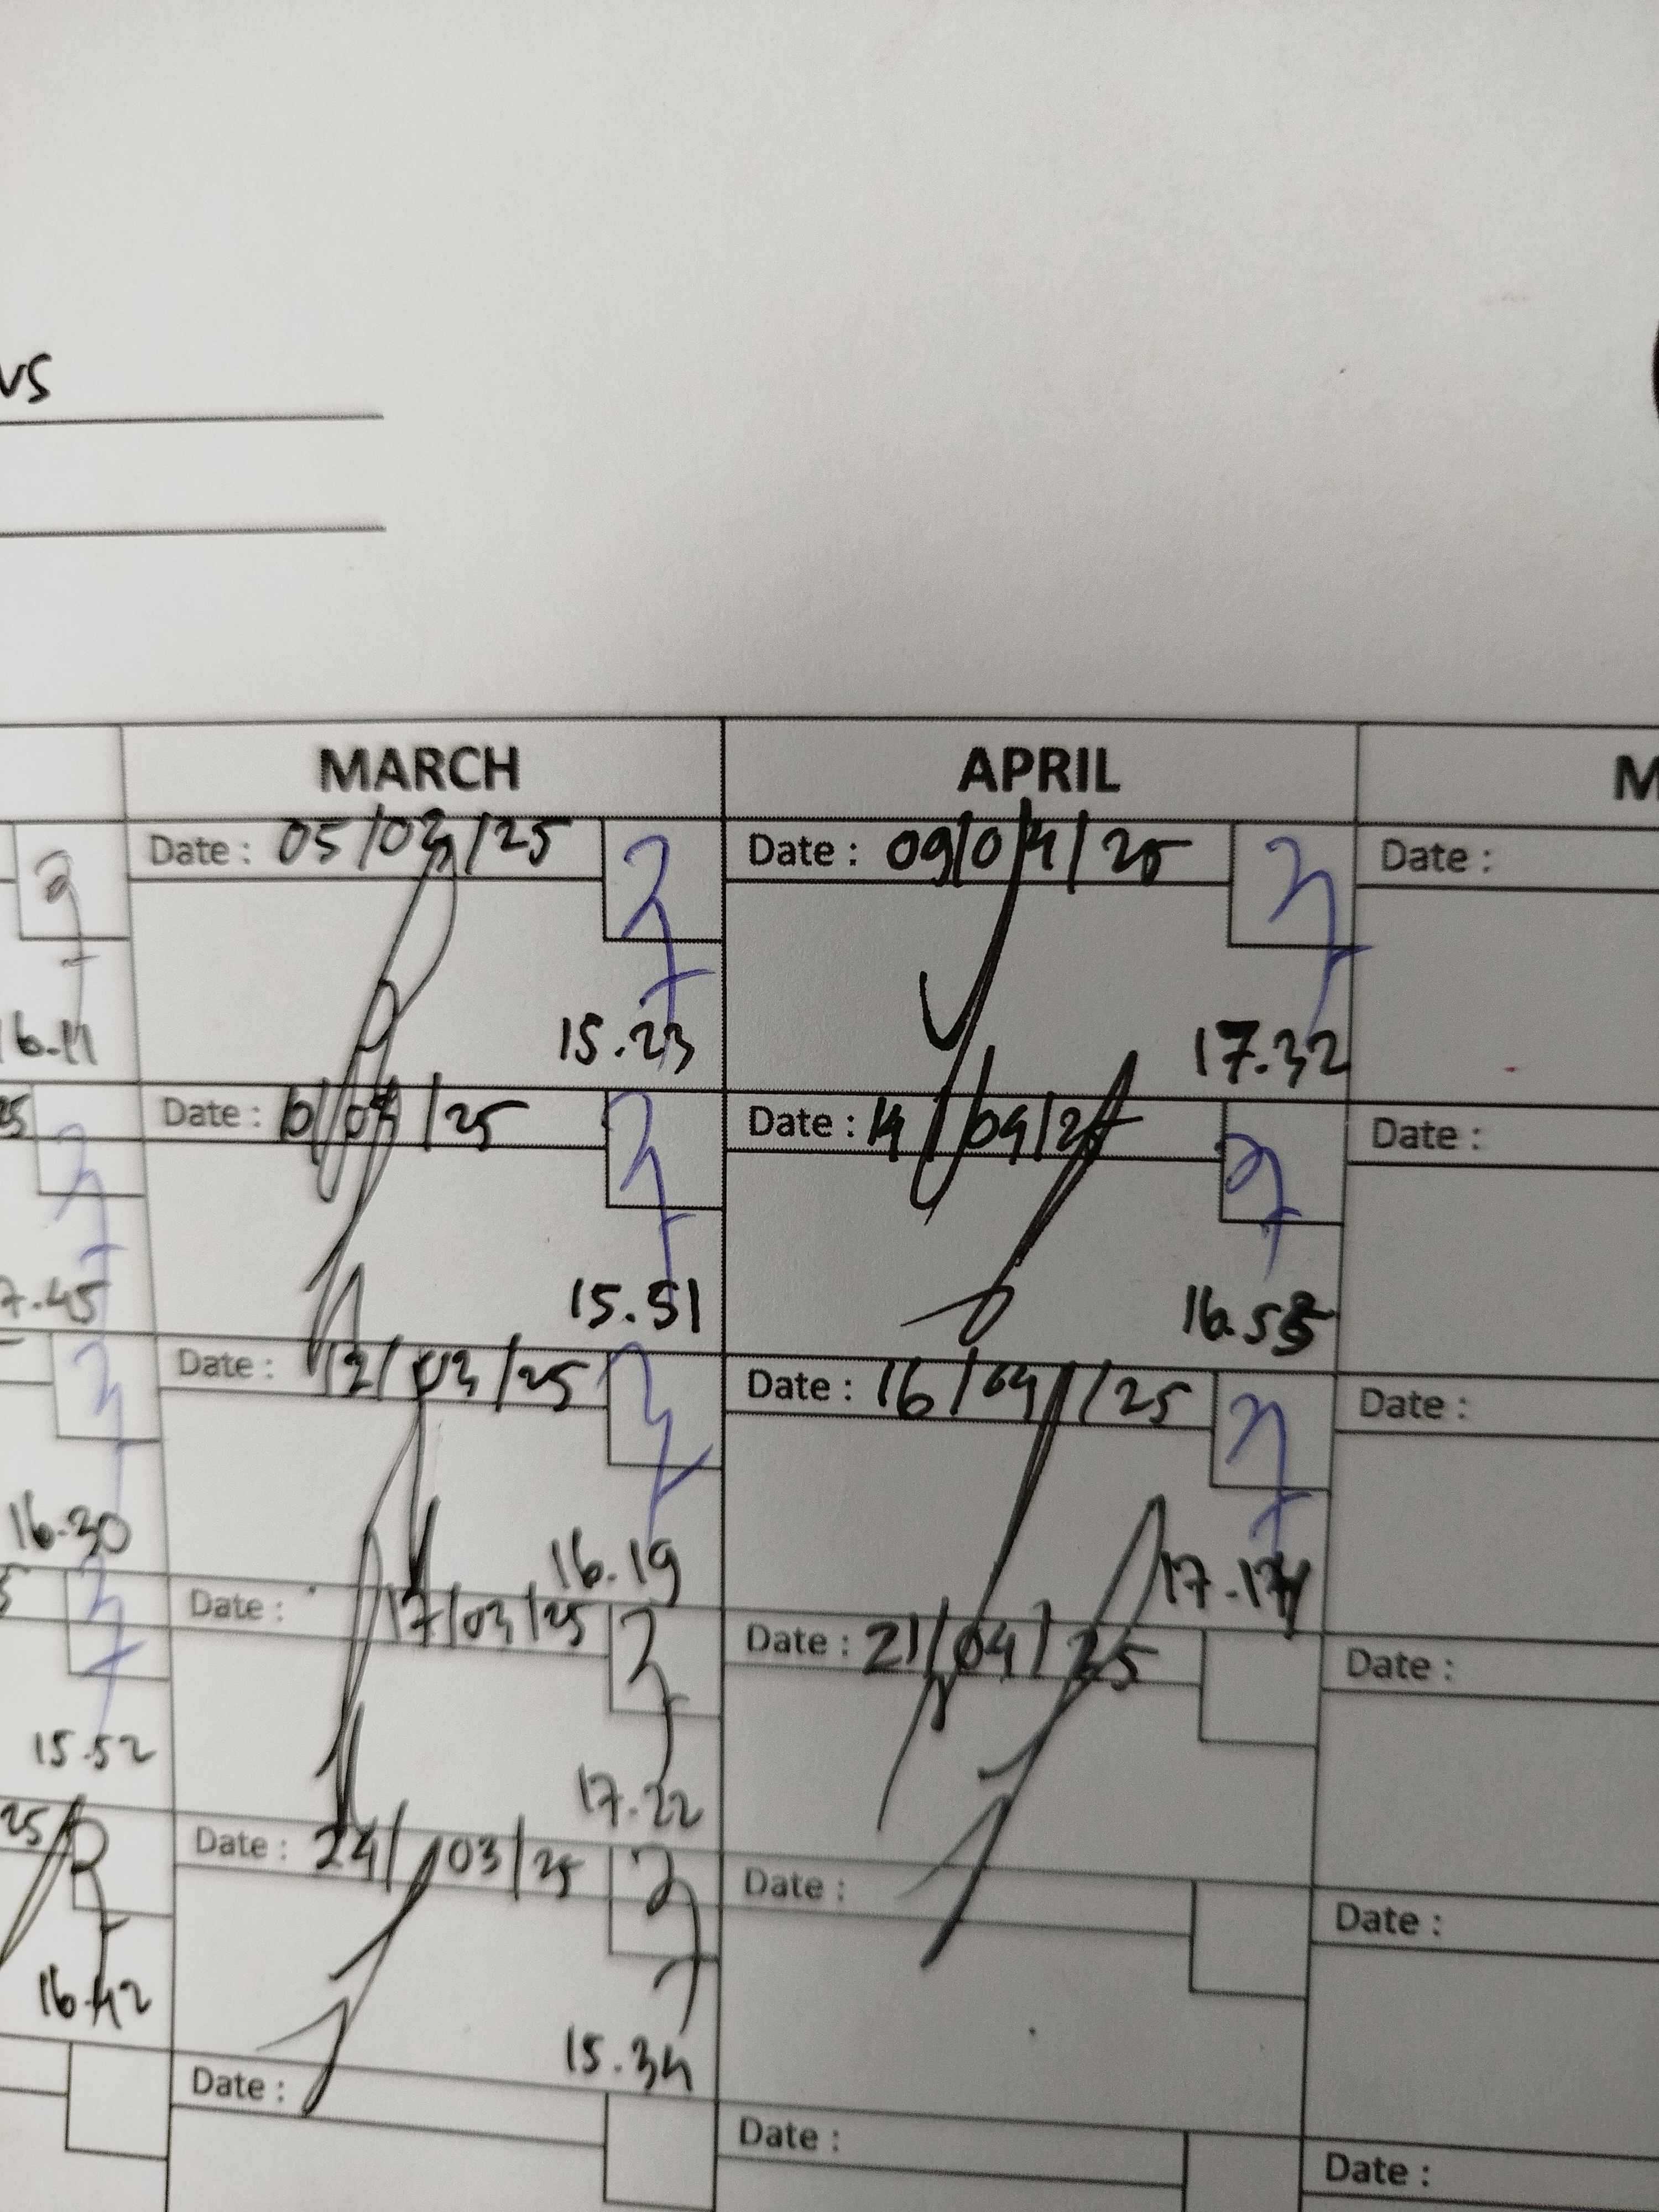 MARCH APRIL
Date : 05/03/25 Date : 09/04/25 Date :
16.11 15.23 17.32
25 Date : 10/03/25 Date : 14/04/25 Date :
7.45 15.51 16.53
Date : 12/03/25 Date : 16/04/25 Date :
16.30 16.19 17.17
Date : 17/03/25 Date : 21/04/25 Date :
15.52 17.22
25 Date : 24/03/25 Date : Date :
16.42 15.34
Date : Date : Date :